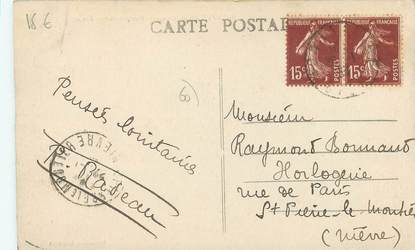 18 €
CARTE POSTA
REPUBLIQUE FRANÇAISE
15c POSTES
REPUBLIQUE FRANÇAISE
15c POSTES
60
Pensées lointaines
Monsieur
Raymond Bonnand
Horlogerie
rue de Paris
St Pierre le Moutier
(Nièvre)